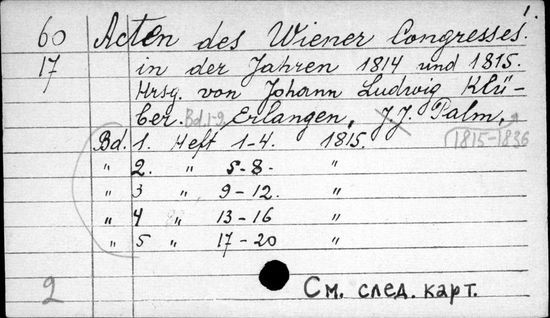 1.
60 Acten des Wiener Congresses.
17 in der Jahren 1814 und 1815.
Hrsg. von Johann Ludwig Klü-
ber. Bd. 1-9 Erlangen, J. J. Palm,
(1815-1836)
Bd. 1. Heft 1-4. 1815.
" 2. " 5-8. "
" 3 " 9-12. "
" 4 " 13-16 "
" 5 " 17-20 "
2 См. след. карт.